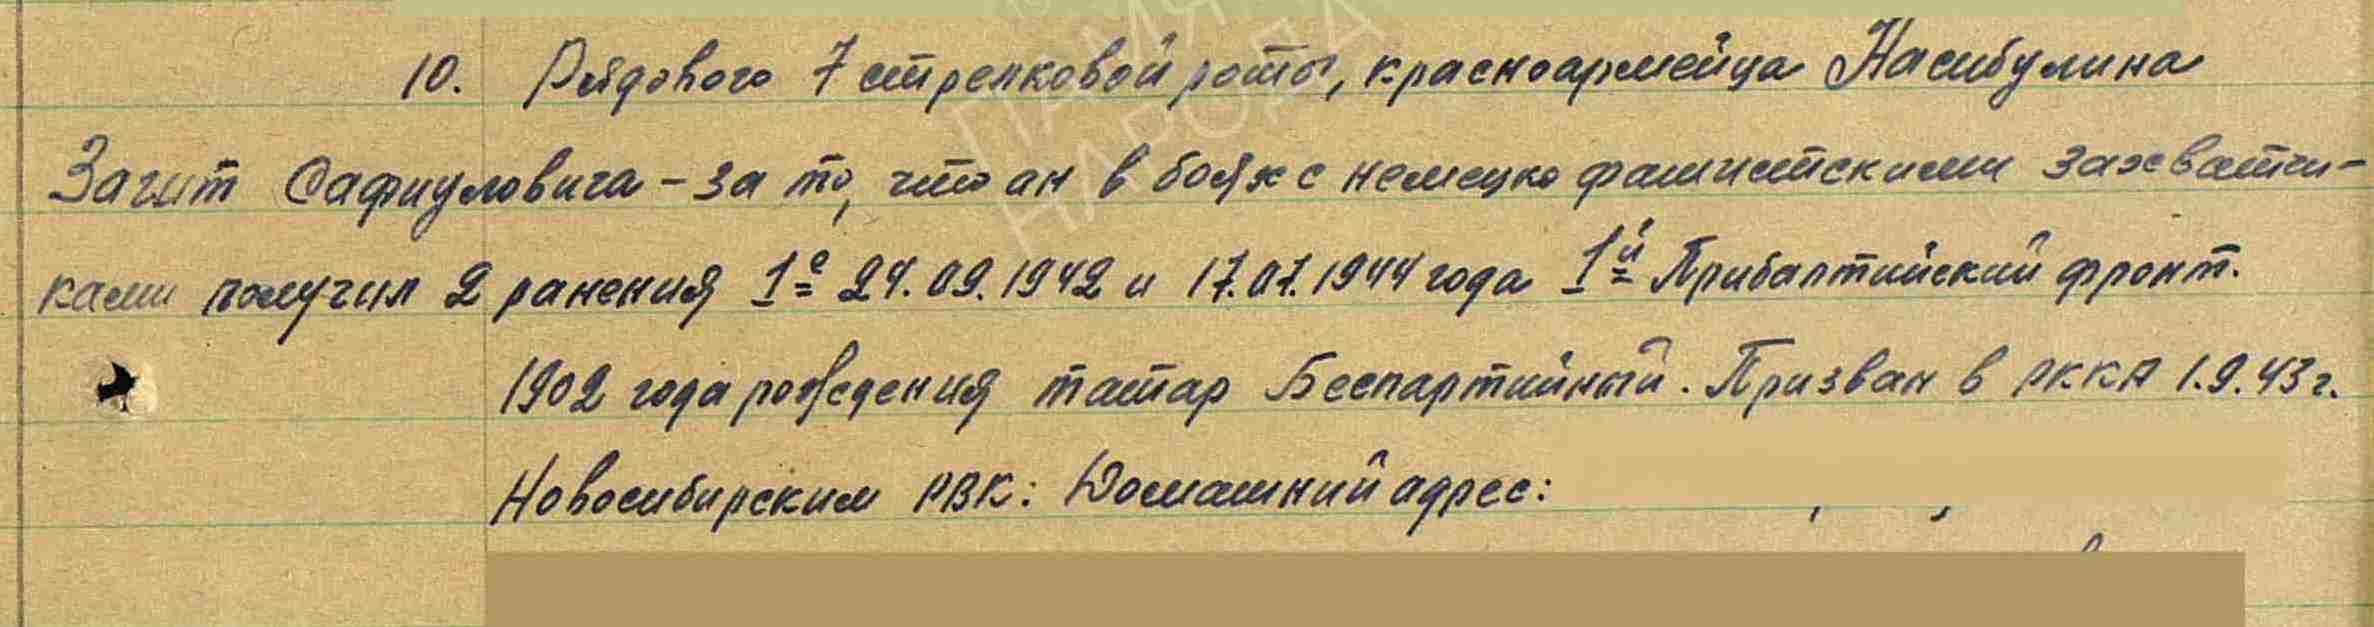 ПАМЯ
НАРОДА
10. Рядового 7 стрелковой роты, красноармейца Насибулина
Загит Сафиуловича – за то, что он в боях с немецко фашистскими захватчи-
ками получил 2 ранения 1е 24.09.1942 и 17.07.1944 года 1й Прибалтийский фронт.
1902 года рождения татар Беспартийный. Призван в РККА 1.9.43 г.
Новосибирским РВК: Домашний адрес: